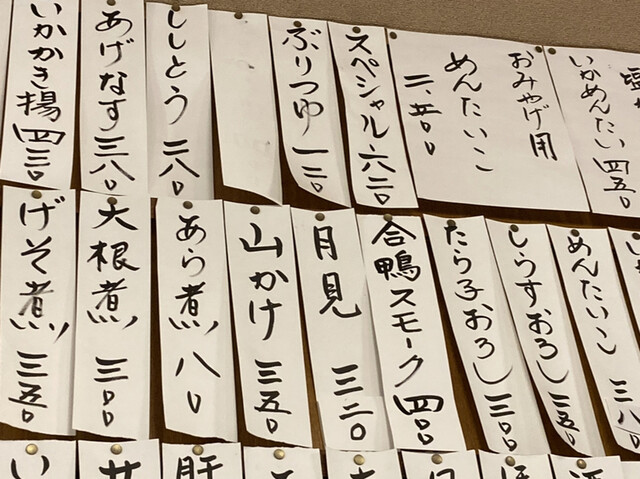 いかめんたい 四五〇
おみやげ用
めんたいこ
二、五〇〇
スペシャル 六二〇
ぶりつゆ 一二〇
ししとう 二八〇
あげなす 三八〇
いかかき揚 四三〇
めんたいこ 三八〇
しらすおろし 三五〇
たら子おろし 三〇〇
合鴨スモーク 四〇〇
月見 三二〇
山かけ 三五〇
あら煮 八〇
大根煮 三〇〇
げそ煮 三五〇
肝
い